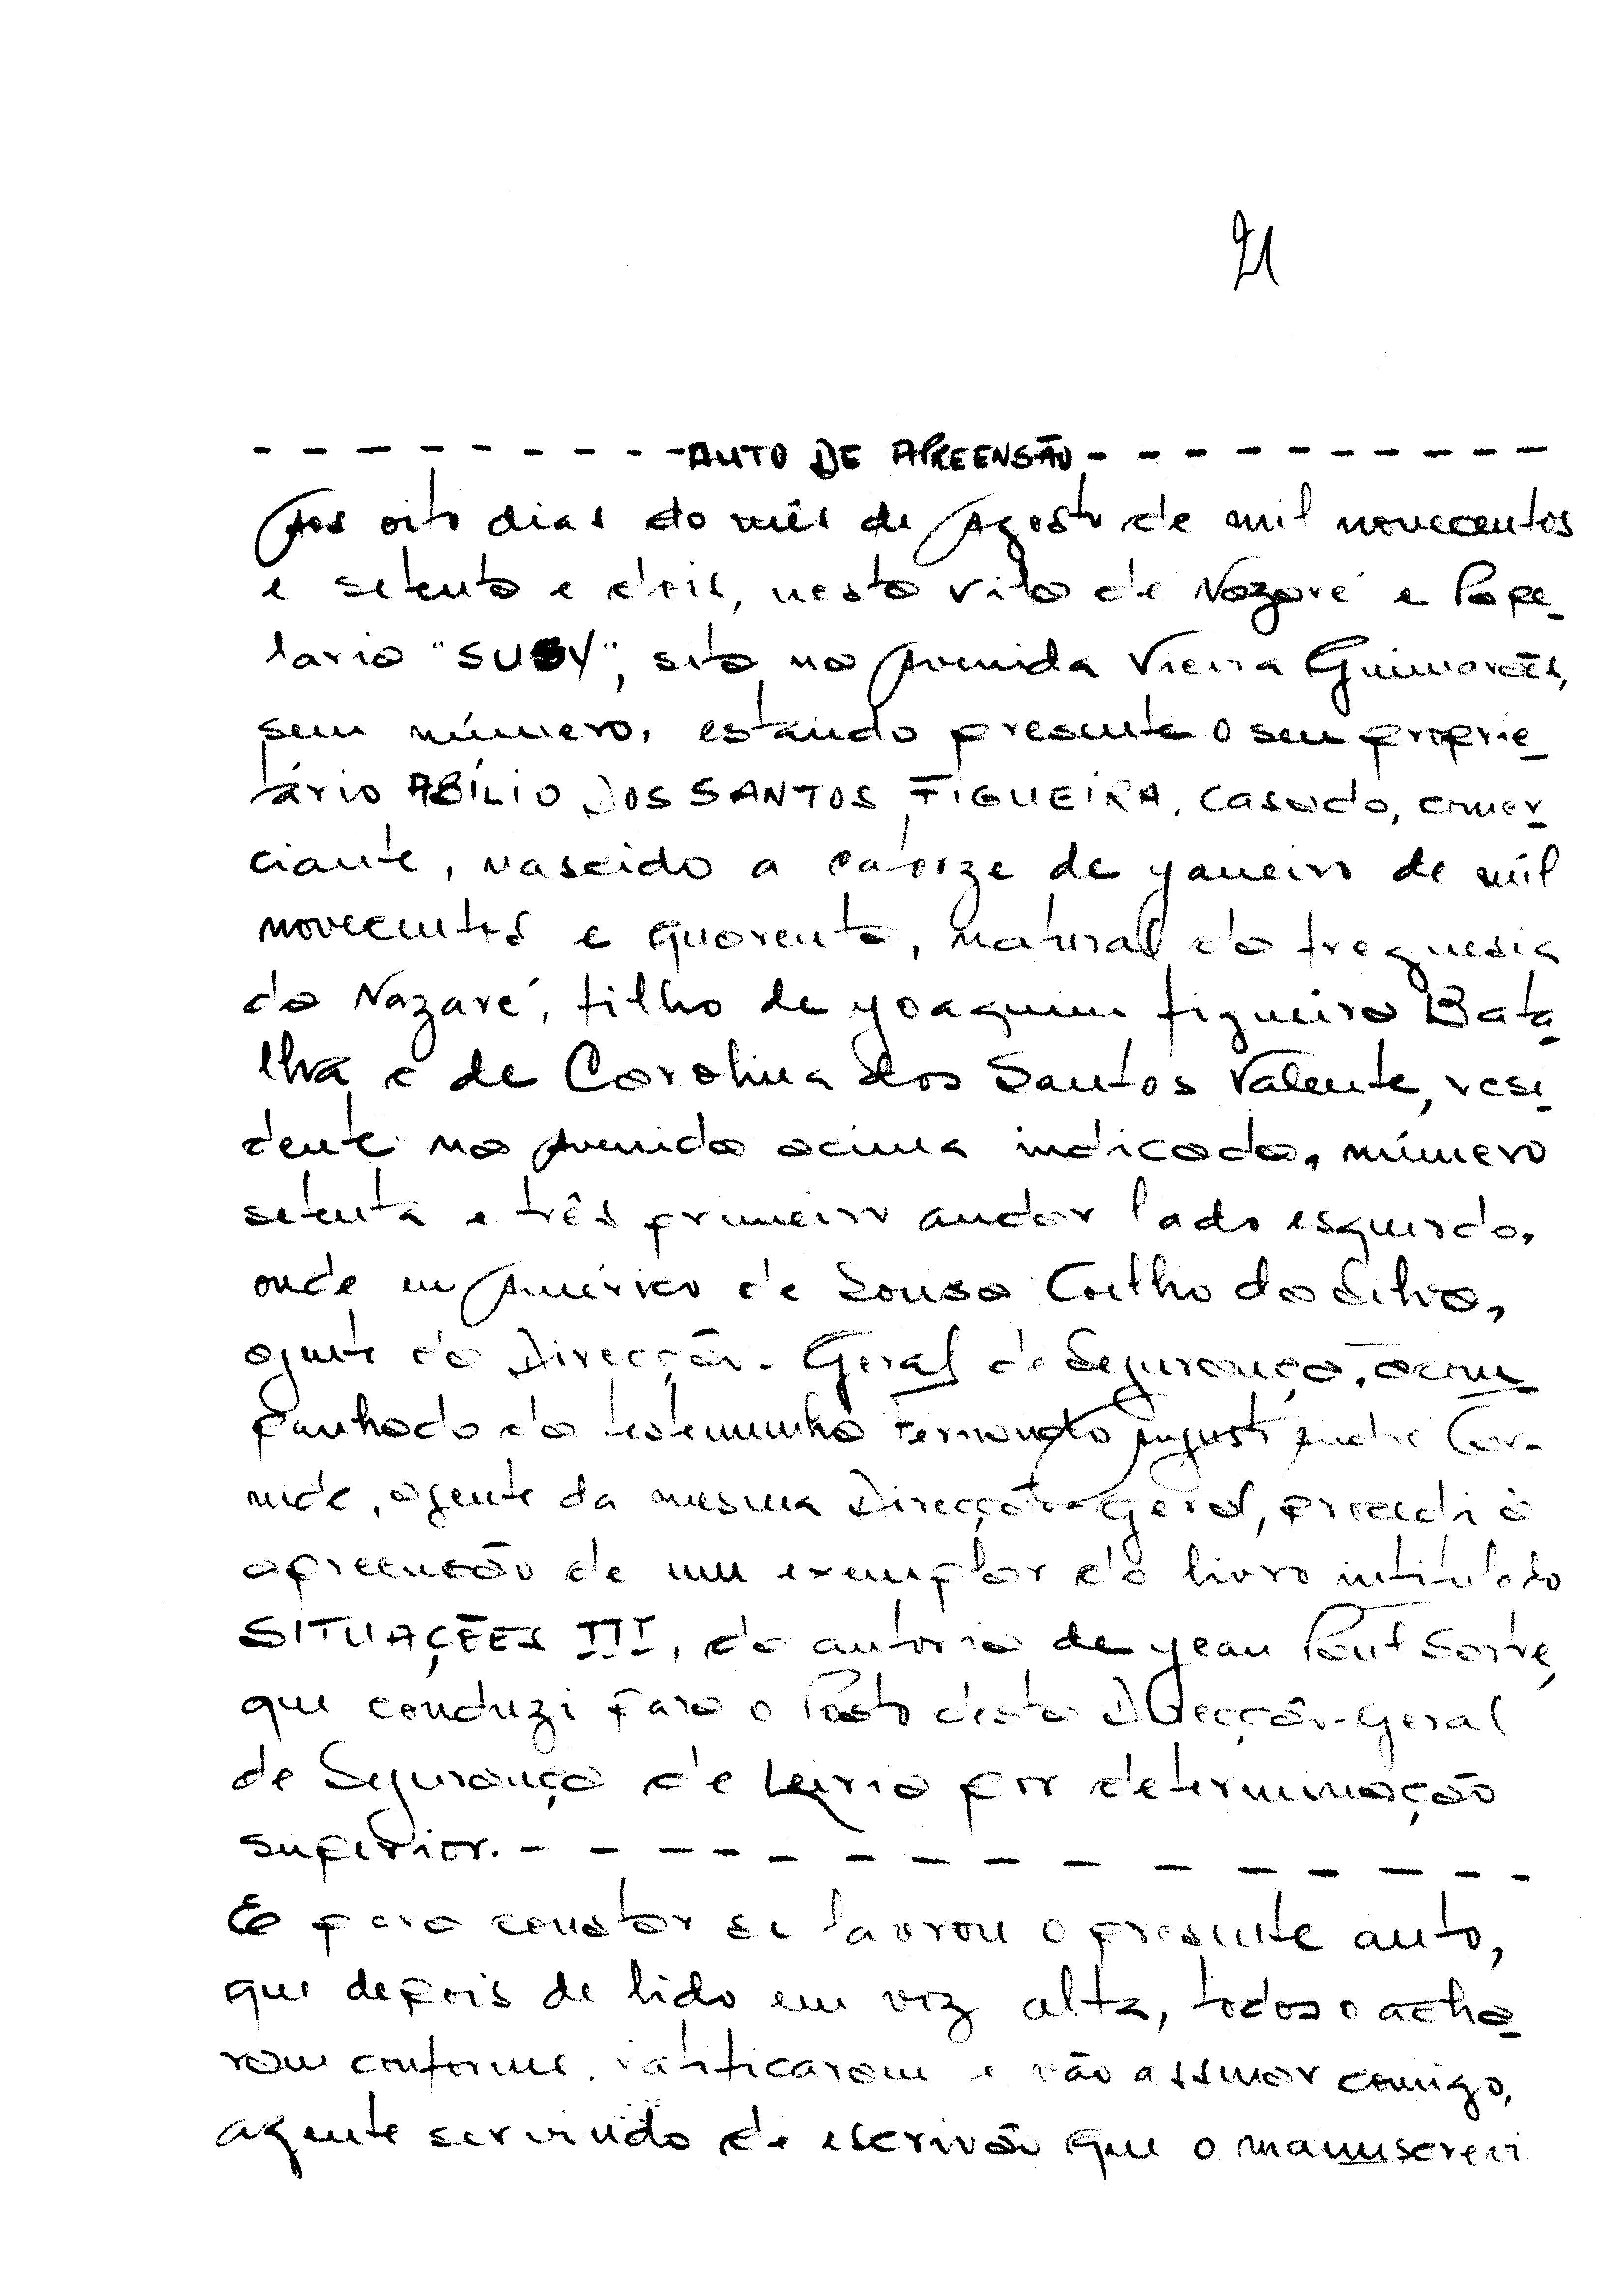 21
- - - - - - - - - - AUTO DE APREENSÃO - - - - - - - - - -
Aos oito dias do mês de Agosto de mil novecentos
e setenta e dois, nesta vila de Nazaré e Pape-
laria "SUSY", sita na Avenida Vieira Guimarães,
sem número, estando presente o seu proprie-
tário ABÍLIO DOS SANTOS FIGUEIRA, casado, comer-
ciante, nascido a catorze de Janeiro de mil
novecentos e quarenta, natural da freguesia
da Nazaré, filho de Joaquim Figueira Bata-
lha e de Carolina dos Santos Valente, resi-
dente na Avenida acima indicada, número
setenta e três primeiro andar lado esquerdo,
onde eu Américo de Sousa Coelho da Silva,
agente da Direcção-Geral de Segurança, acom-
panhado da testemunha Fernando Augusto André
agente da mesma Direcção-Geral, procedi à
apreensão de um exemplar do livro intitulado
SITUAÇÕES III, da autoria de Jean Paul Sartre,
que conduzi para o Posto desta Direcção-Geral
de Segurança de Leiria por determinação
superior. - - - - - - - - - - - - - -
E para constar se lavrou o presente auto,
que depois de lido em voz alta, todos o acha-
ram conforme, ratificaram e vão assinar comigo,
agente servindo de escrivão que o manuscrevi